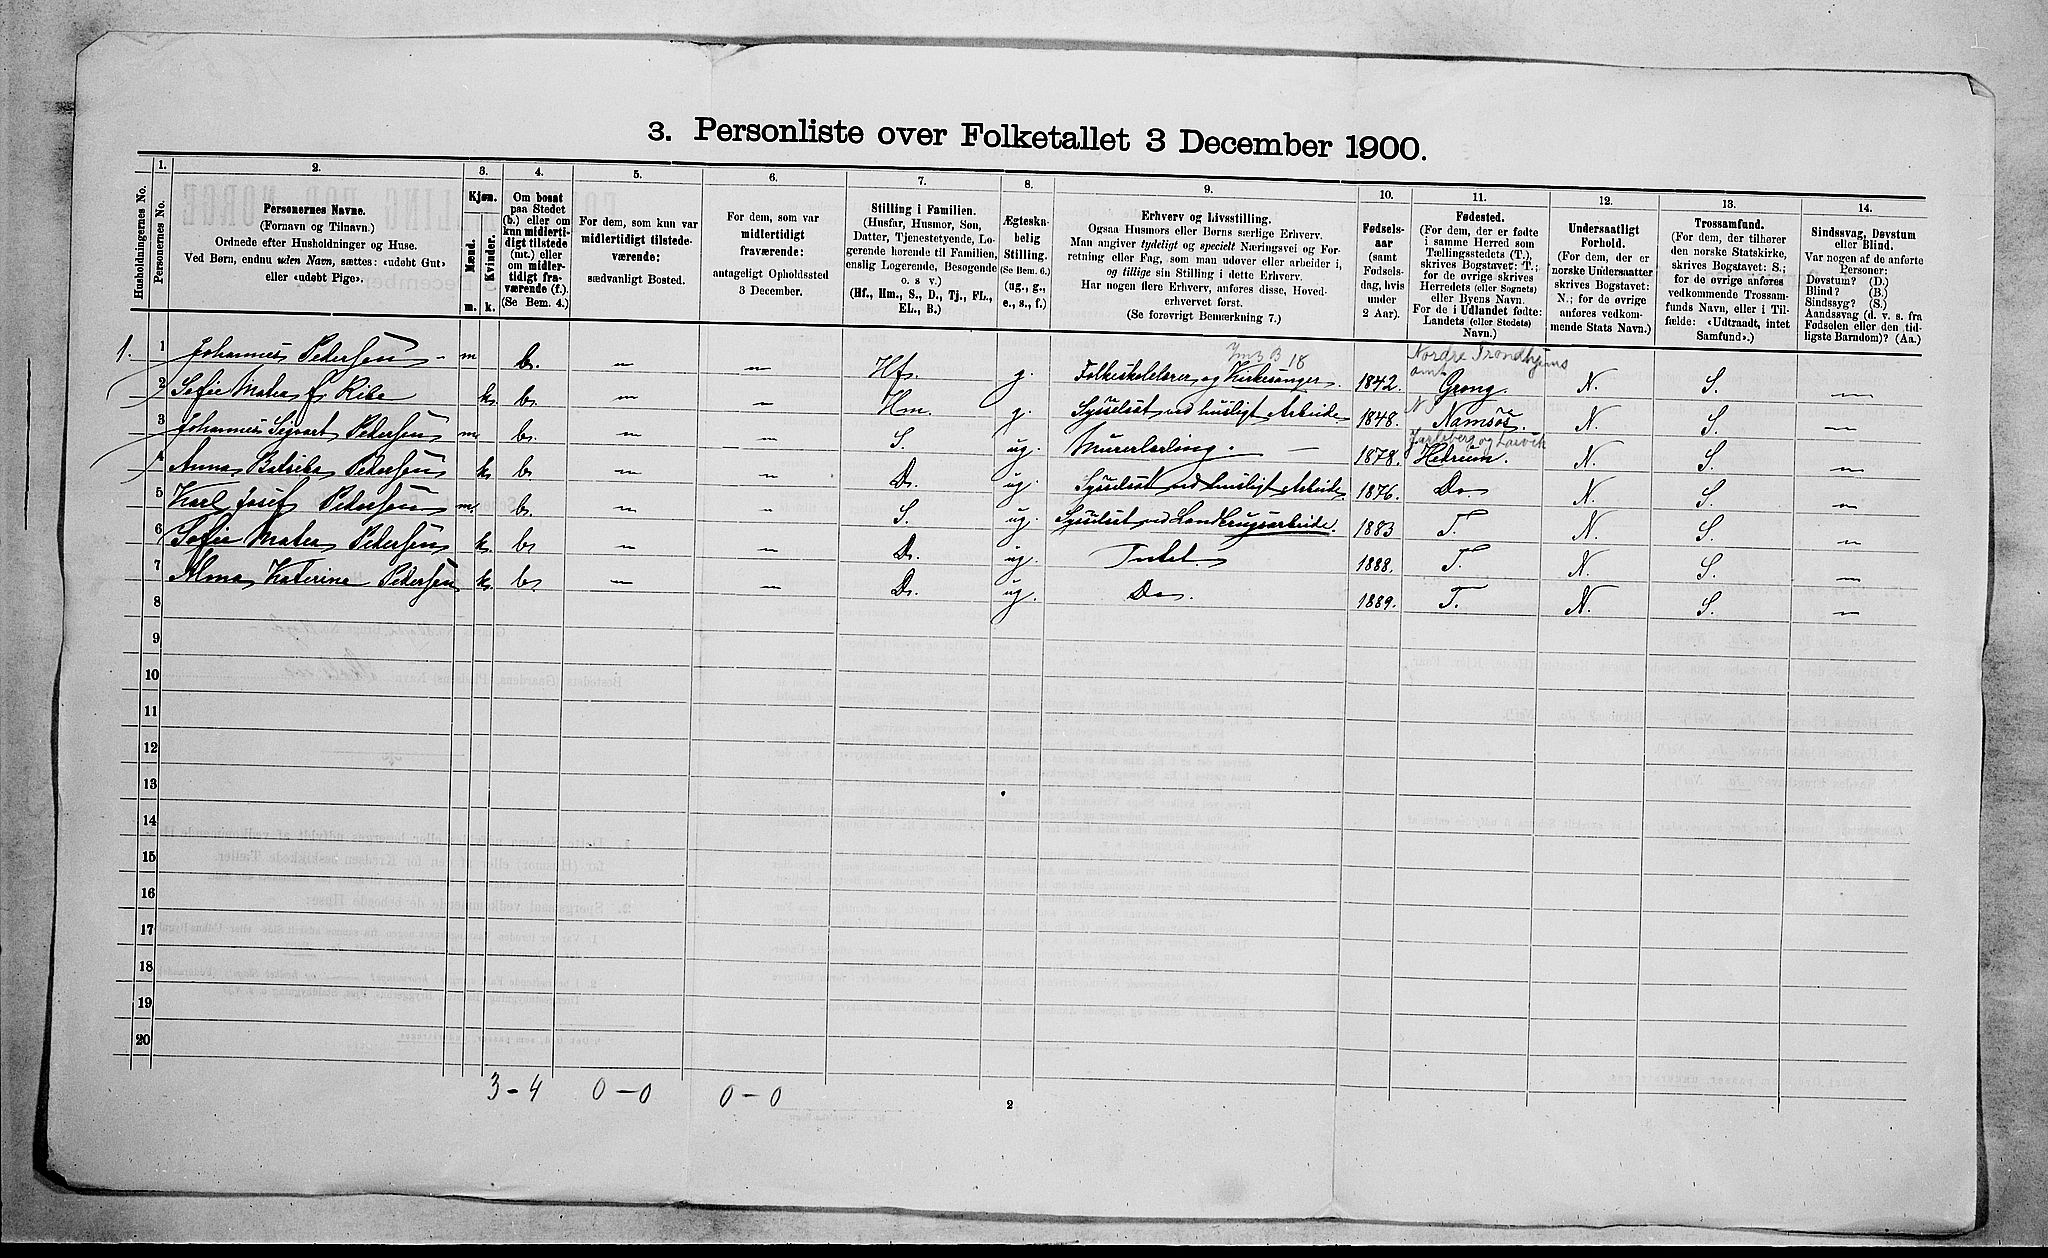 3. Personliste over Folketallet 3 December 1900.
Husholdningernes No.
1.
Personernes No.
2.
Personernes Navne.
(Fornavn og Tilnavn.)
Ordnede efter Husholdninger og Huse.
Ved Børn, endnu uden Navn, sættes: «udøbt Gut»
eller «udøbt Pige».
3.
Kjøn.
Mænd.
Kvinder.
m. k.
4.
Om bosat
paa Stedet
(b.) eller om
kun midlerti-
digt tilstede
(mt.) eller
om midler-
tidigt fra-
værende (f.).
(Se Bem. 4.)
5.
For dem, som kun var
midlertidigt tilstede-
værende:
sædvanligt Bosted.
6.
For dem, som var
midlertidigt
fraværende:
antageligt Opholdssted
3 December.
7.
Stilling i Familien.
(Husfar, Husmor, Søn,
Datter, Tjenestetyende, Lo-
gerende hørende til Familien,
enslig Logerende, Besøgende
o. s v.)
(Hf., Hm., S., D., Tj., FL.,
EL., B.)
8.
Ægteska-
belig
Stilling.
(Se Bem. 6.)
(ug., g.,
e., s., f.)
9.
Erhverv og Livsstilling.
Ogsaa Husmors eller Børns særlige Erhverv.
Man angiver tydeligt og specielt Næringsvei og For-
retning eller Fag, som man udøver eller arbeider i,
og tillige sin Stilling i dette Erhverv.
Har nogen flere Erhverv, anføres disse, Hoved-
erhvervet først.
(Se forøvrigt Bemærkning 7.)
10.
Fødsels-
aar
(samt
Fødsels-
dag, hvis
under
2 Aar).
11.
Fødested.
(For dem, der er fødte
i samme Herred som
Tællingsstedets (T.),
skrives Bogstavet: T.;
for de øvrige skrives
Herredets (eller Sognets)
eller Byens Navn.
For de i Udlandet fødte:
Landets (eller Stedets)
Navn.)
12.
Undersaatligt
Forhold.
(For dem, der er
norske Undersaatter
skrives Bogstavet:
N.; for de øvrige
anføres vedkom-
mende Stats Navn.)
13.
Trossamfund.
(For dem, der tilhører
den norske Statskirke,
skrives Bogstavet: S.;
for de øvrige anføres
vedkommende Trossam-
funds Navn, eller i Til-
fælde: «Udtraadt, intet
Samfund».)
14.
Sindssvag, Døvstum
eller Blind.
Var nogen af de anførte
Personer:
Døvstum? (D.)
Blind? (B.)
Sindssyg? (S.)
Aandssvag (d. v. s. fra
Fødselen eller den tid-
ligste Barndom)? (Aa.)
1. 1 Johannes Pedersen m b. — — Hf. g. Folkeskolelærer og Kirkesanger. 1842. Nordre Trondhjems amt Grong. N. S. —
2 Sofie Matea f. Ribe k. b. — — Hm. g. Sysselsat ved husligt Arbeide 1848. N Namsos. N. S. —
3 Johannes Sigvart Pedersen m. b. — — S. ug. Murerlærling. — 1878. Jarlsberg og Larvik Hedrum. N. S. —
4 Anna Batseba Pedersen k. b. — — D. ug. Sysselsat ved husligt Arbeide 1876. Do N. S. —
5 Karl Josef Pedersen m. b. — — S. ug. Sysselsat ved Landbrugsarbeide. 1883 T. N. S. —
6 Sofie Matea Pedersen k. b. — — D. ug. Intet. 1888. T. N. S. —
7 Alma Katerine Pedersen k. b. — — D. ug. Do. 1889. T. N. S. —
8
9
10
11
12
13
14
15
16
17
18
19
20
3 - 4 0 - 0 0 - 0
2